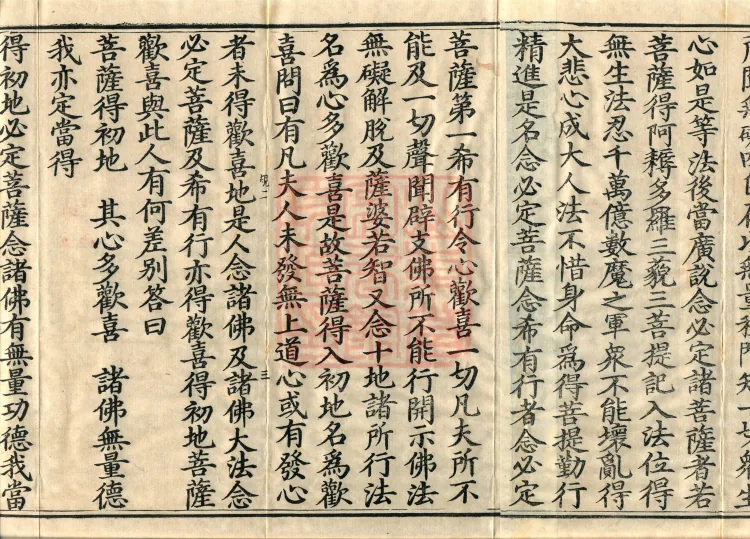 心如是等法後當廣說念必定諸菩薩者若
菩薩得阿耨多羅三藐三菩提記入法位得
無生法忍千萬億數魔之軍衆不能壞亂得
大悲心成大人法不惜身命爲得菩提勤行
精進是名念必定菩薩念希有行者念必定
菩薩第一希有行令心歡喜一切凡夫所不
能及一切聲聞辟支佛所不能行開示佛法
無礙解脫及薩婆若智又念十地諸所行法
名爲心多歡喜是故菩薩得入初地名爲歡
喜問曰有凡夫人未發無上道心或有發心
二 三
者未得歡喜地是人念諸佛及諸佛大法念
必定菩薩及希有行亦得歡喜得初地菩薩
歡喜與此人有何差別答曰
菩薩得初地 其心多歡喜 諸佛無量德
我亦定當得
得初地必定菩薩念諸佛有無量功德我當